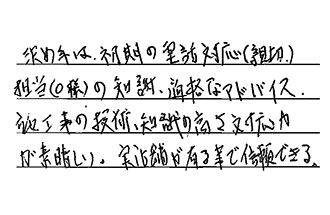 決め手は、初期の電話対応(親切)
担当(O様)の知識、適格なアドバイス、
施工事の技術、知識の高さ対応力
が素晴しい。実店舗が有る事で信頼できる。